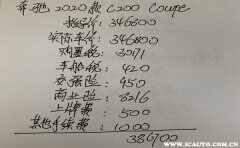 奔驰2020款C200 Coupe
指导价:346800
实际车价:346800
购置税:30171
车船税:420
交强险:950
商业险:8216
上牌费:500
其他手续费:1000
386700
www.3CAUTO.COM